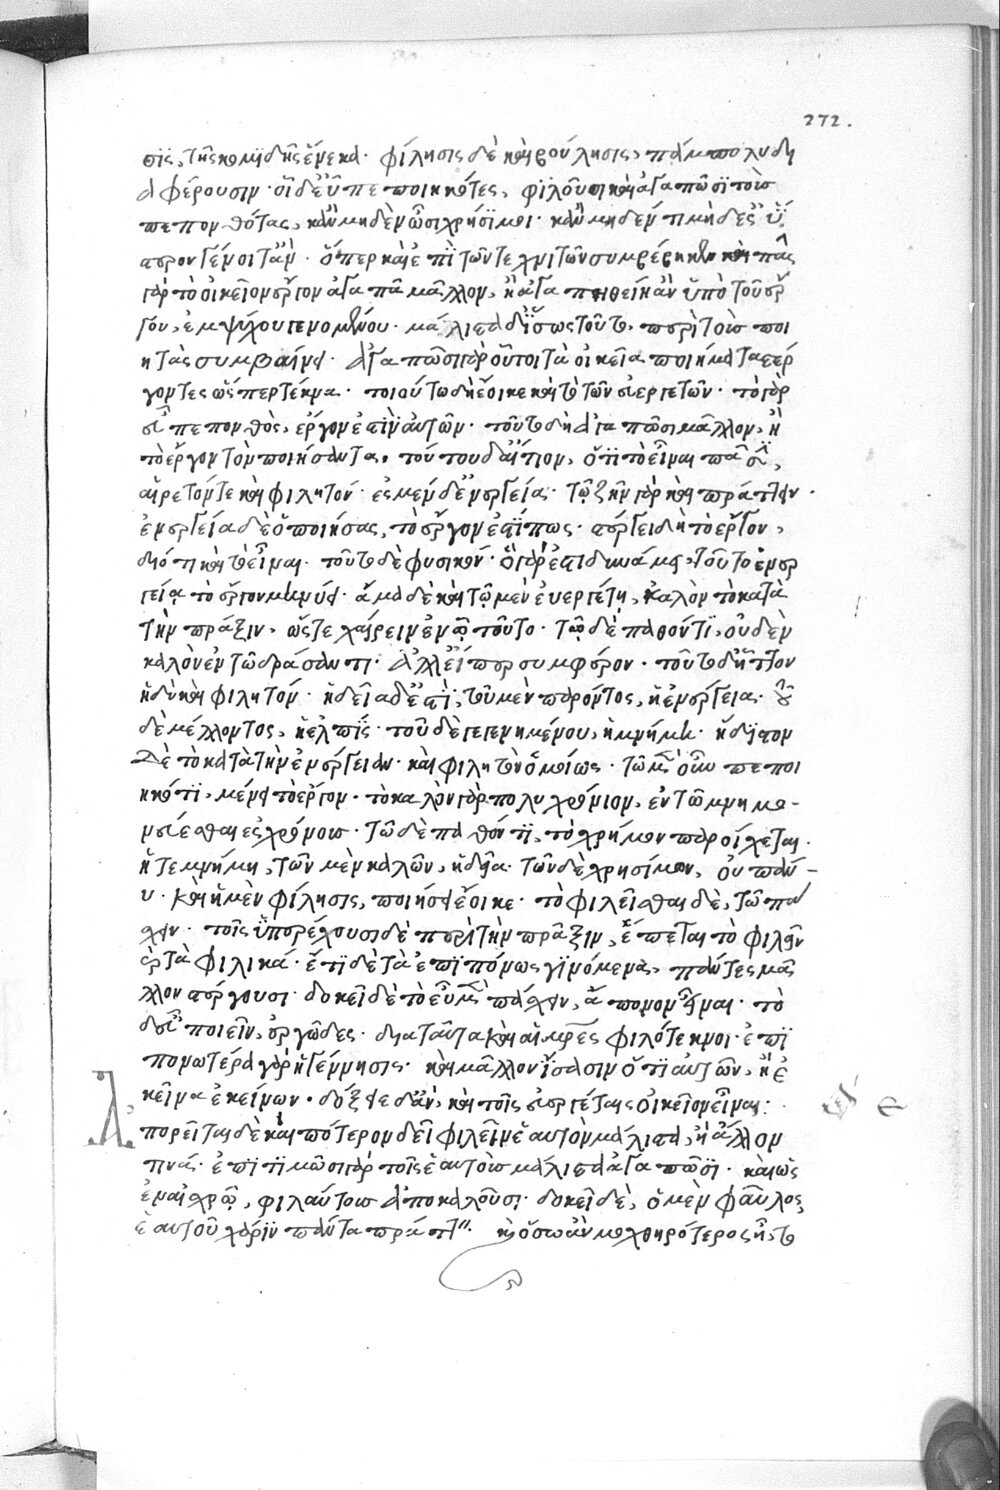 272.
σϊς, τῆς κομϊδῆς ἕνεκα. φίλησις δὲ καὶ βούλησις, πάμπολυ δι
αφέρουσιν. οἱ δ' εὖ πεποιηκότες, φιλοῦσι καὶ ἀγαπῶσι τοὺς
πεπονθότας, κἂν μηδὲν ὦσι χρήσιμοι. κἂν μηδὲν τι μηδ' ἐς ὕ
στερον γένοιτ' ἄν. ὅπερ καὶ ἐπὶ τῶν τεχνιτῶν συμβέβηκε καὶ πᾶς
γὰρ τὸ οἰκεῖον ἔργον ἀγαπᾶ μᾶλλον, ἢ ἀγαπηθείη ἂν ὑπὸ τοῦ ἔρ
γου, ἐμψύχου γενομένου. μάλιστα δ' ἴσως τοῦτο, περὶ τοὺς ποι
ητὰς συμβαίνει. ἀγαπῶσι γὰρ οὗτοι τὰ οἰκεῖα ποιήματα στέρ
γοντες ὥσπερ τέκνα. τοιούτω δὴ ἔοικε καὶ τὸ τῶν εὐεργετῶν. τὸ γὰρ
εὖ πεπονθὸς, ἔργον ἐστὶν αὐτῶν. τοῦτο δὴ ἀγαπῶσι μᾶλλον, ἢ
τὸ ἔργον τὸν ποιήσαντα. τούτου δ' αἴτιον, ὅτι τὸ εἶναι πᾶσιν,
αἱρετόν τε καὶ φιλητόν. ἐσμὲν δ' ἐνεργεία. τῶ ζῆν γὰρ καὶ πράττειν.
ἐνεργεία δὲ ὁ ποιήσας, τὸ ἔργον ἐστί πως. στέργει δὴ τὸ ἔργον,
διότι καὶ τὸ εἶναι. τοῦτο δὲ φυσικόν. ὃ γάρ ἐστι δυνάμει, τοῦτο ἐνερ
γεία τὸ ἔργον μηνύει. ἅμα δὲ καὶ τῶ μὲν εὐεργέτη, καλὸν τὸ κατὰ
τὴν πράξιν, ὥστε χαίρειν ἐν ᾧ τοῦτο. τῶ δὲ παθόντι, οὐδὲν
καλὸν ἐν τῶ δράσαντι. ἀλλ' εἴπερ συμφέρον. τοῦτο δ' ἧττον
ἡδὺ καὶ φιλητόν. ἡδεῖα δ' ἐστὶ, τοῦ μὲν παρόντος, ἡ ἐνέργεια. τοῦ
δὲ μέλλοντος, ἡ ἐλπίς. τοῦ δὲ γεγενημένου, ἡ μνήμη. ἥδιστον
δὲ τὸ κατὰ τὴν ἐνέργειαν. καὶ φιλητὸν ὁμοίως. τῶ μὲν οὖν πεποι
ηκότι, μένει τὸ ἔργον. τὸ καλὸν γὰρ πολυχρόνιον, ἐν τῶ μνημο-
νεύεσθαι ἐς χρόνους. τῶ δὲ παθόντι, τὸ χρήσιμον παροίχεται.
ἥ τε μνήμη, τῶν μὲν καλῶν, ἡδεῖα. τῶν δὲ χρησίμων, οὐ πάν-
υ. καὶ ἡ μὲν φίλησις, ποιήσει ἔοικε. τὸ φιλεῖσθαι δὲ, τῶ πά
σχειν. τοῖς ὑπερέχουσι δὲ περὶ τὴν πρᾶξιν, ἕπεται τὸ φιλεῖν
καὶ τὰ φιλικά. ἔτι δὲ τὰ ἐπιπόνως γινόμενα, πάντες μᾶλ
λον στέργουσι. δοκεῖ δὲ τὸ εὖ μὲν πάσχειν, ἄπονον εἶναι. τὸ
δ' εὖ ποιεῖν, ἐργῶδες. διὰ ταῦτα καὶ αἱ μητέρες φιλότεκνοι. ἐπι
πονωτέρα γὰρ ἡ γέννησις. καὶ μᾶλλον ἴσασιν ὅτι αὐτῶν, ἢ ἐ
κεῖνα ἐκείνων. δόξειε δ' ἂν, καὶ τοῖς εὐεργέταις οἰκεῖον εἶναι:
Ἀπορεῖται δὲ καὶ πότερον δεῖ φιλεῖν ἑαυτὸν μάλιστα, ἢ ἄλλον
τινάς. ἐπιτιμῶσι γὰρ τοῖς ἑαυτοὺς μάλιστα ἀγαπῶσι. καὶ ὡς
ἐν αἰσχρῶ, φιλαύτους ἀποκαλοῦσι. δοκεῖ δὲ, ὁ μὲν φαῦλος,
ἑαυτοῦ χάριν πάντα πράττειν. καὶ ὅσω ἂν μοχθηρότερος ἦ, το